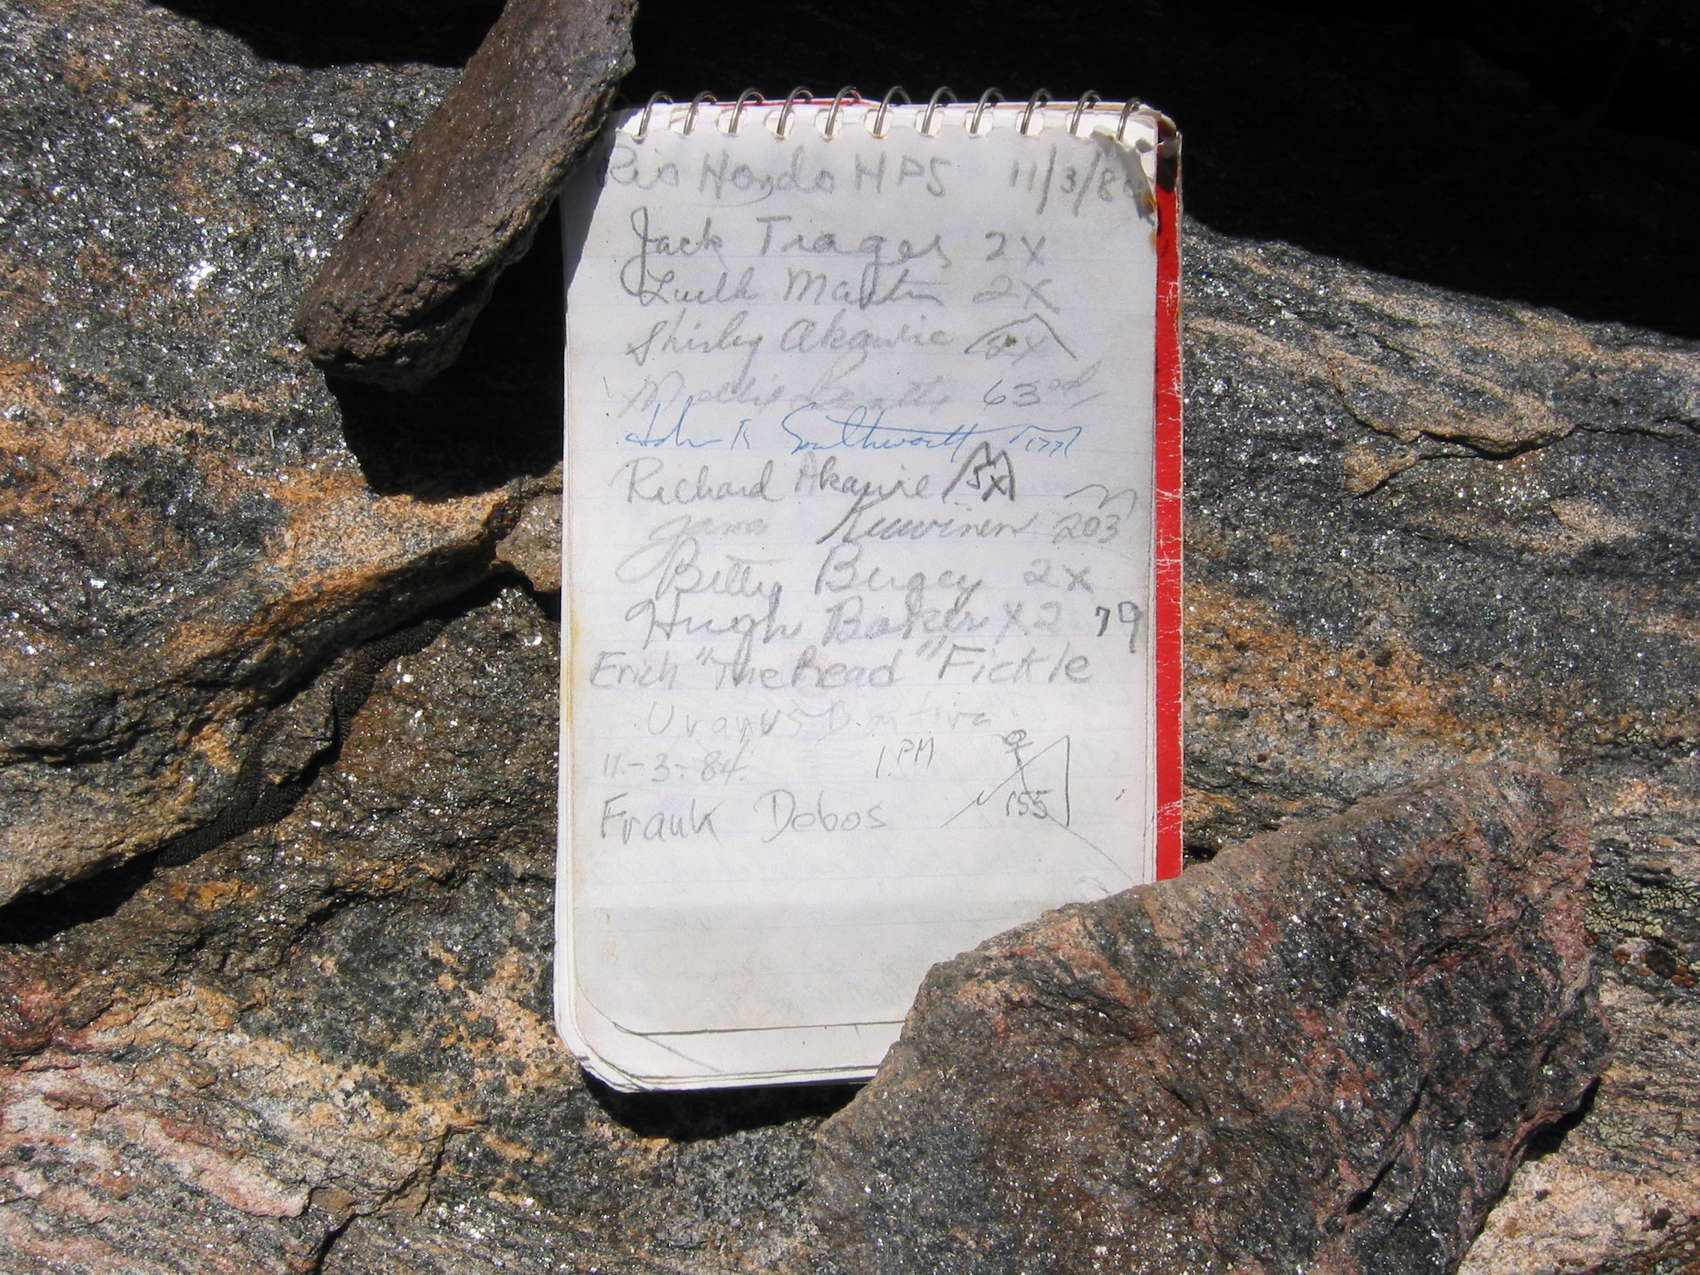 Rio Hondo HPS 11/3/84
Jack Trager 2x
Luella Martin 2x
Shirley Akawie 2x
Mollie 63
John R Southworth
Richard Akawie 5x
203
Betty Bergey 2x
Hugh Baker x2 79
Erich "The Read" Fickle
Uranus
11-3-84 1 PM
Frank Dobos 155